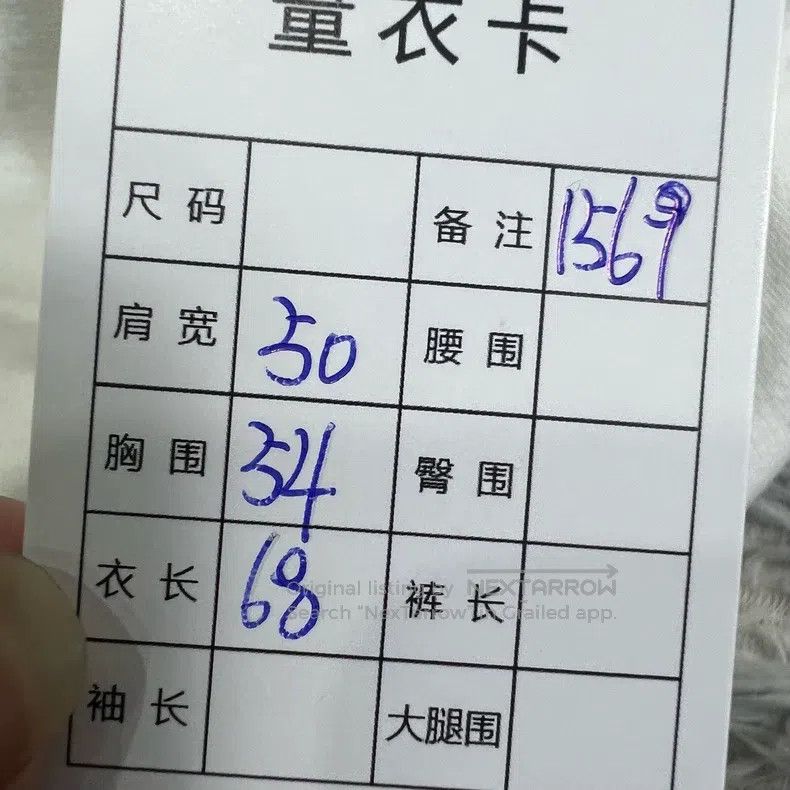 量衣卡
尺码 备注 1569
肩宽 50 腰围
胸围 54 臀围
衣长 68 裤长
Original listing by NEXTARROW
Search "NexTarrow" in Grailed app.
袖长 大腿围